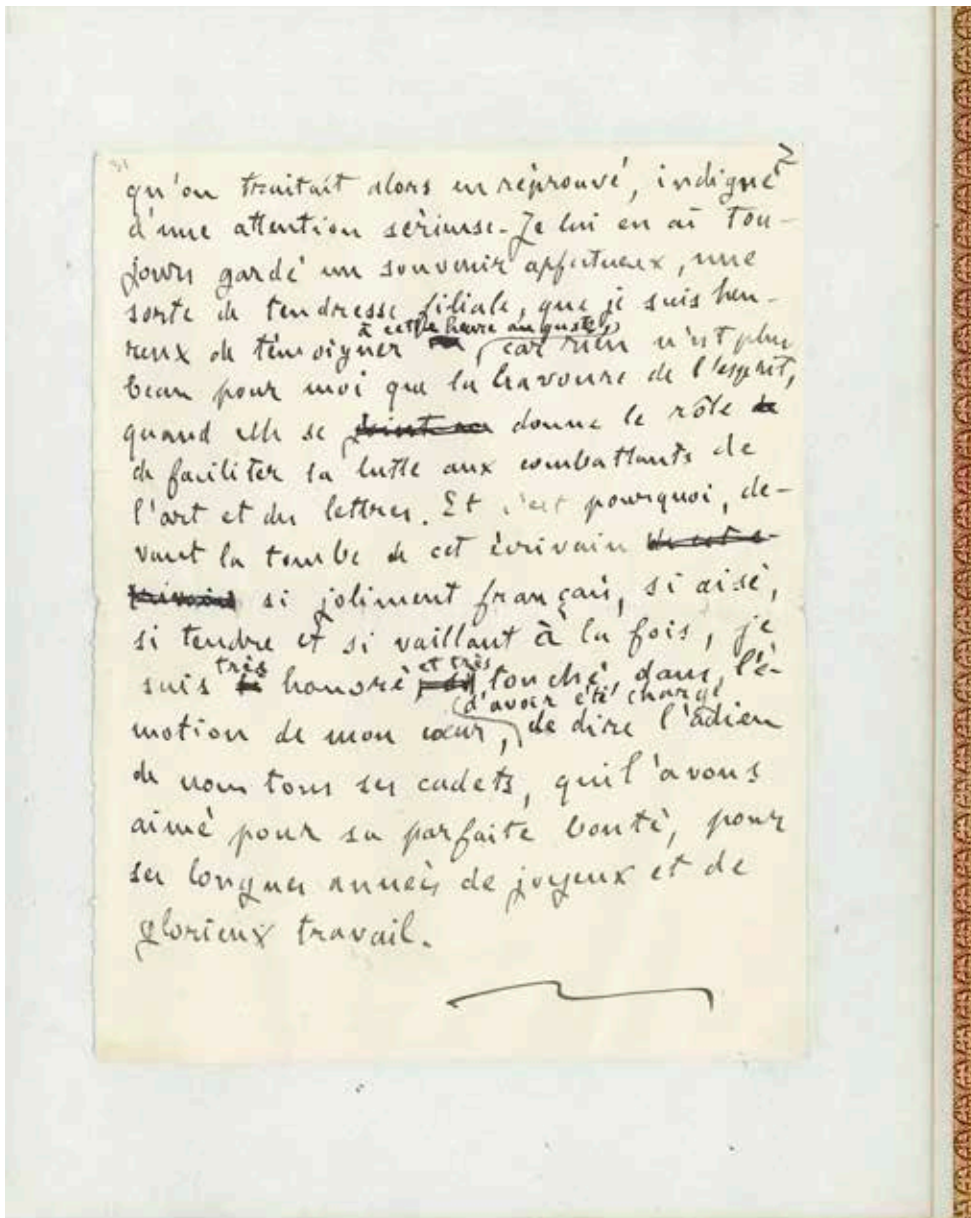 qu'on traitait alors en réprouvé, indigne
d'une attention sérieuse. Je lui en ai tou-
jours gardé un souvenir affectueux, une
sorte de tendresse filiale, que je suis heu-
reux de témoigner à cette heure auguste, car rien n'est plus
beau pour moi que la bravoure de l'esprit,
quand elle se donne le rôle
de faciliter la lutte aux combattants de
l'art et des lettres. Et c'est pourquoi, de-
vant la tombe de cet écrivain
si joliment français, si aisé,
si tendre et si vaillant à la fois, je
suis très honoré et très touché, dans l'é-
motion de mon cœur, d'avoir été chargé de dire l'adieu
de nous tous ses cadets, qui l'avons
aimé pour sa parfaite bonté, pour
ses longues années de joyeux et de
glorieux travail.